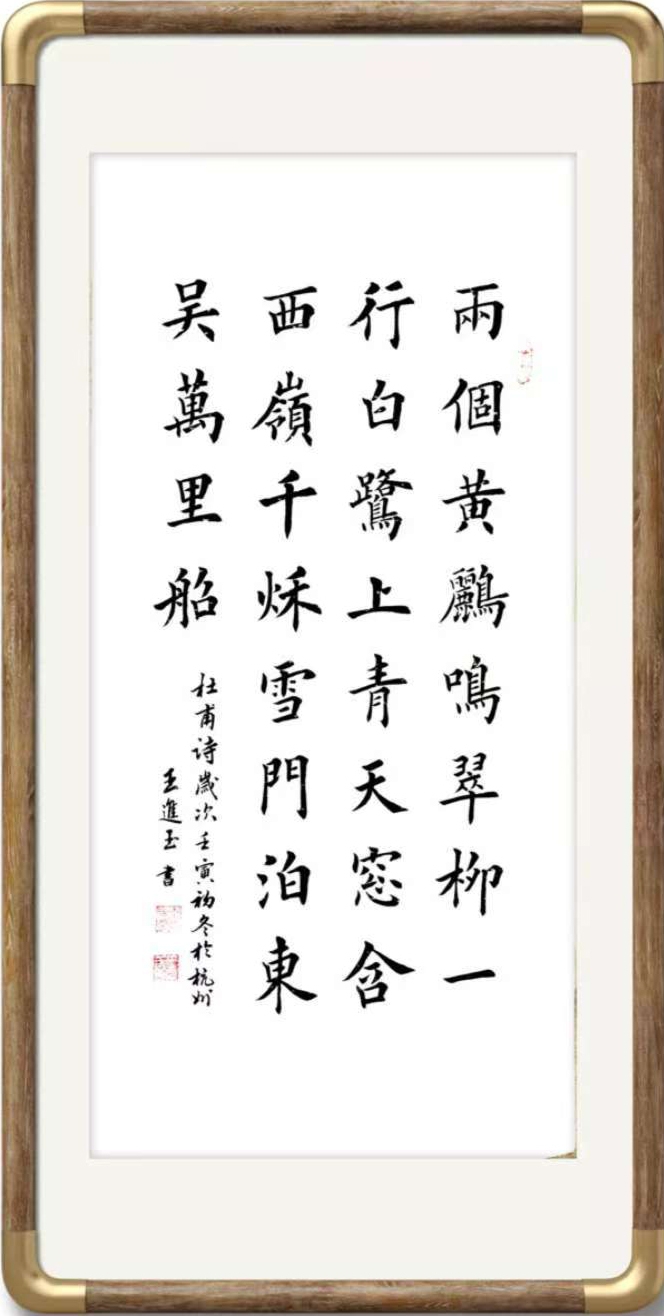 兩個黃鸝鳴翠柳一
行白鷺上青天窓含
西嶺千秌雪門泊東
吴萬里船
杜甫詩歲次壬寅初冬於杭州
王進玉書